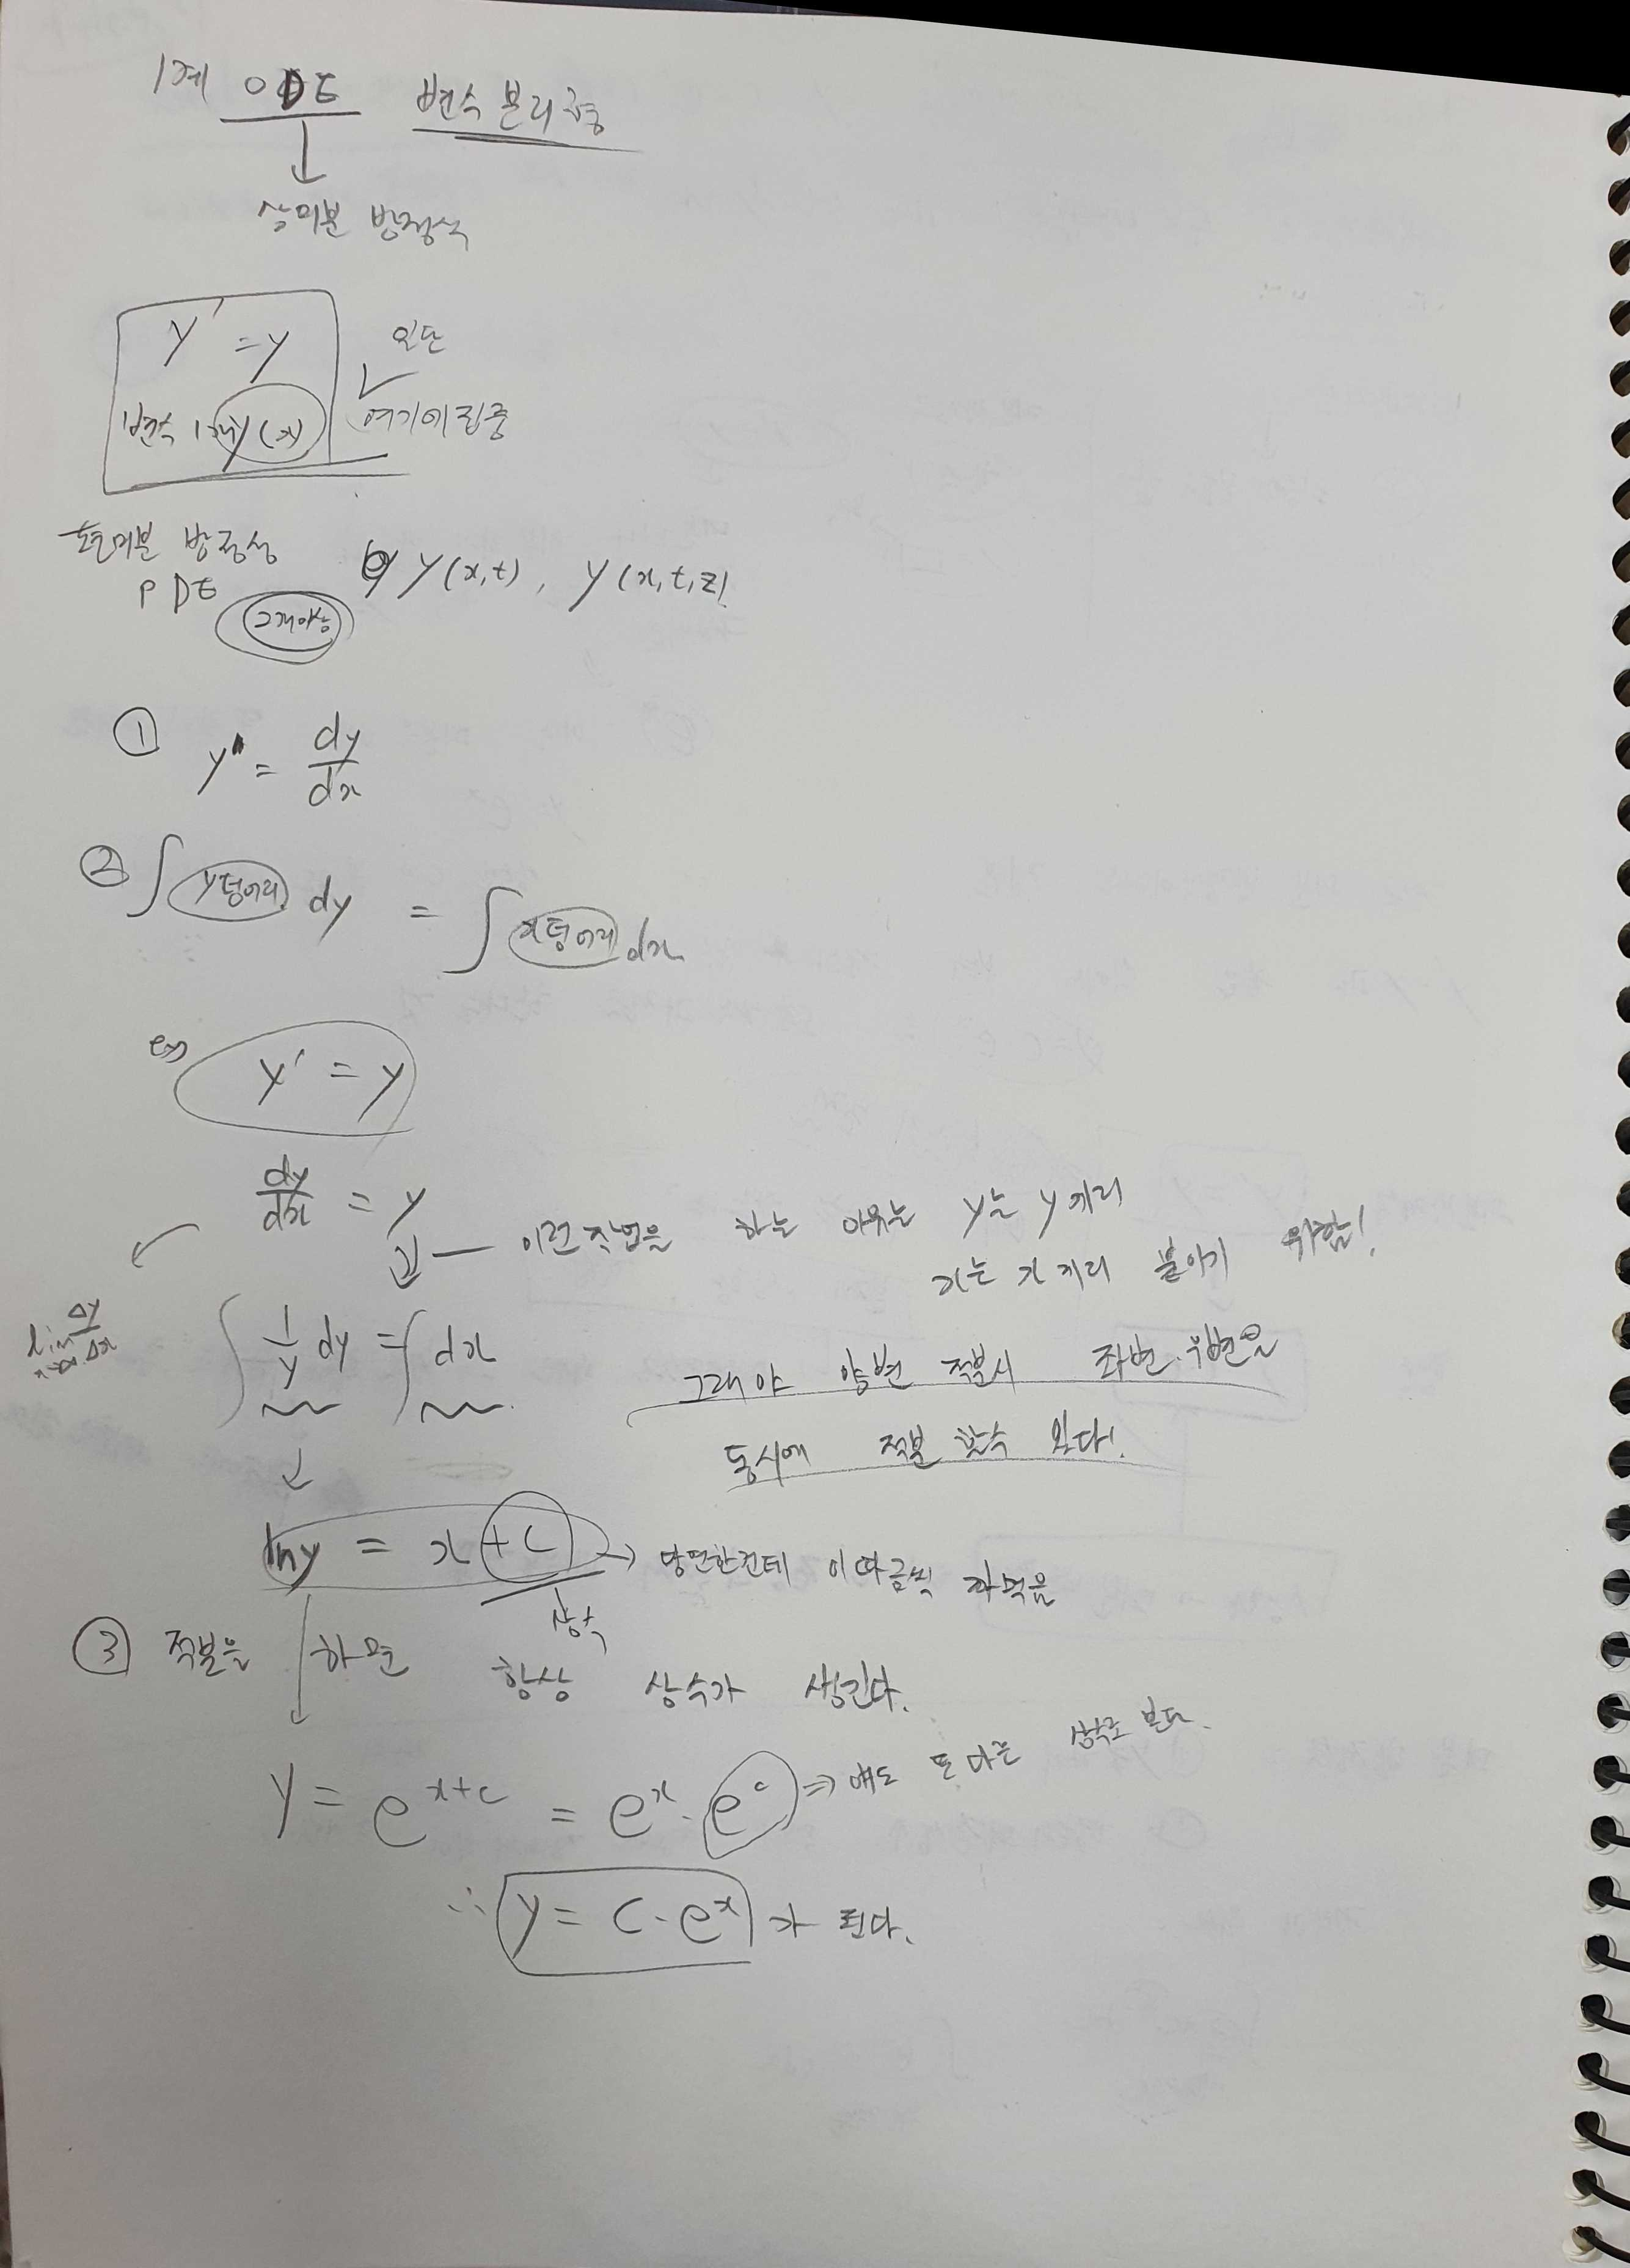 1계 ODE 변수 분리형
상미분 방정식
y' = y
일단
변수 1개 y(x)
여기에 집중
편미분 방정식
PDE
2개이상
y(x,t), y(x,t,z)
① y' = dy/dx
② ∫ y덩어리 dy = ∫ x덩어리 dx
ex)
y' = y
dy/dx = y
이런 작업을 하는 이유는 y는 y끼리
x는 x끼리 붙이기 위함!
lim Δy/Δx
∫ 1/y dy = ∫ dx
그래야 양변 적분시 좌변, 우변을
동시에 적분 할수 있다!
lny = x + C → 당연한건데 이따금씩 까먹음
상수
③ 적분을 하면 항상 상수가 생긴다.
y = e^{x+c} = e^x · e^c ⇒ 얘도 또다른 상수로 본다.
∴ y = C · e^x 가 된다.